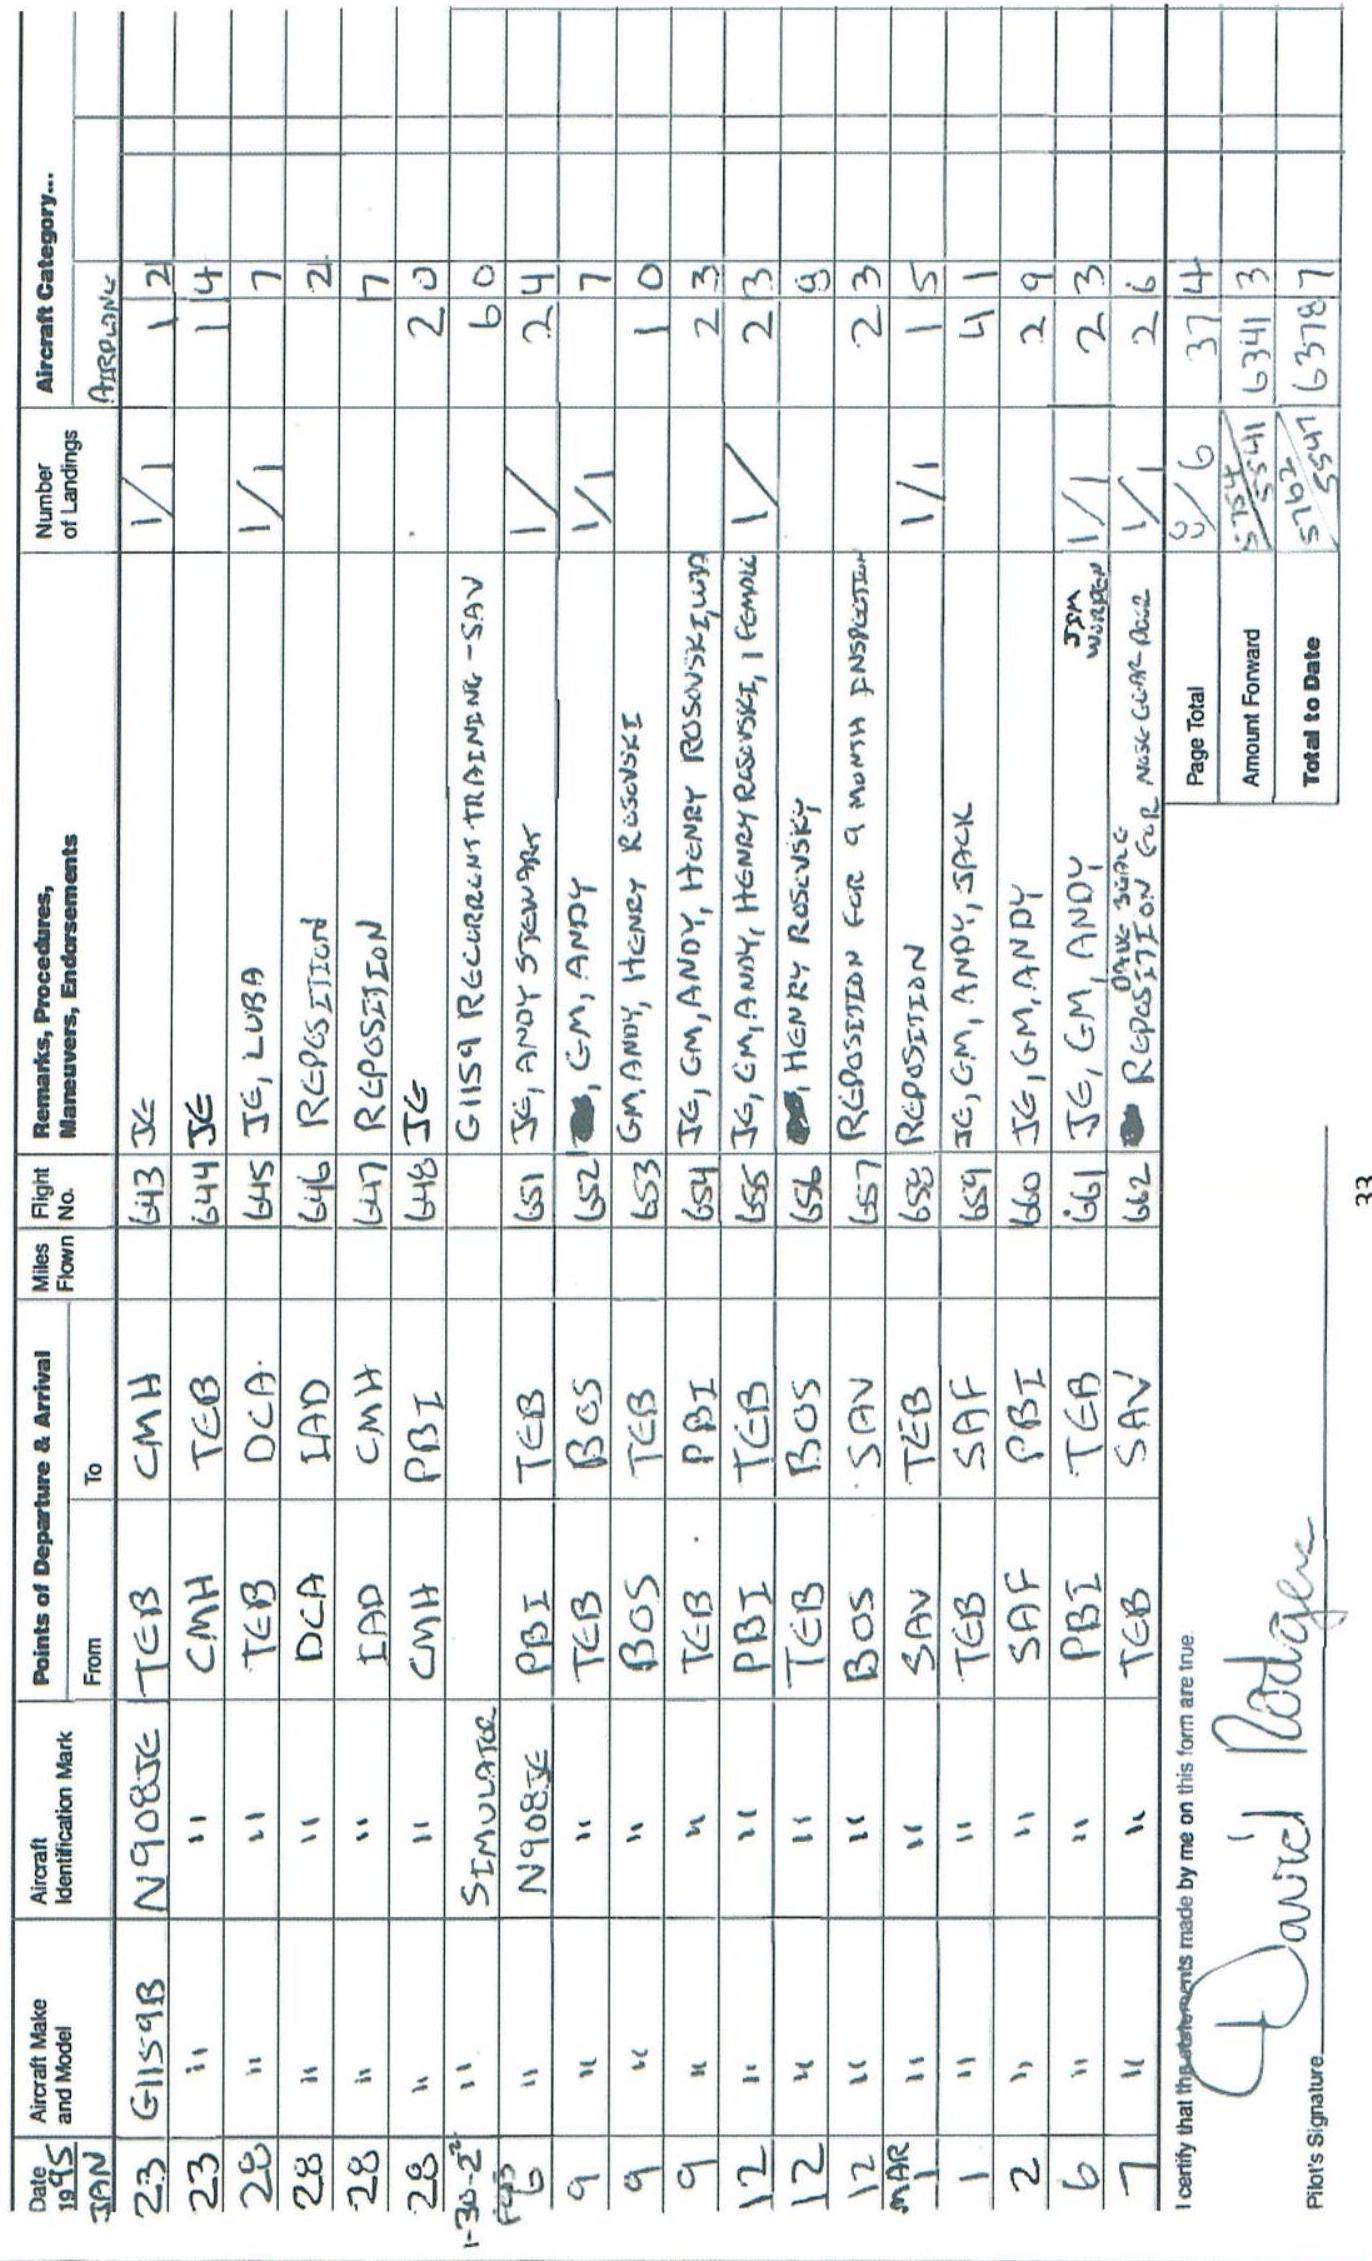 Date Aircraft Make and Model Aircraft Identification Mark Points of Departure & Arrival Miles Flown Flight No. Remarks, Procedures, Maneuvers, Endorsements Number of Landings Aircraft Category...
1995 From To AIRPLANE
JAN
23 G1159B N908JE TEB CMH 643 JE 1/1 1 2
23 " " CMH TEB 644 JE 1 4
28 " " TEB DCA 645 JE, LUBA 1/1 7
28 " " DCA IAD 646 REPOSITION 2
28 " " IAD CMH 647 REPOSITION 7
28 " " CMH PBI 648 JE 2 0
1-30-2-2 " SIMULATOR G1159 RECURRENT TRAINING - SAV 6 0
FEB
6 " N908JE PBI TEB 651 JE, ANDY STEWART 1/ 2 4
9 " " TEB BOS 652 , GM, ANDY 1/1 7
9 " " BOS TEB 653 GM, ANDY, HENRY ROSOVSKI 1 0
9 " " TEB PBI 654 JE, GM, ANDY, HENRY ROSOVSKI, 2 3
12 " " PBI TEB 655 JE, GM, ANDY, HENRY ROSOVSKI, 1 FEMALE 1/ 2 3
12 " " TEB BOS 656 , HENRY ROSOVSKY
12 " " BOS SAV 657 REPOSITION FOR 9 MONTH INSPECTION 2 3
MAR
1 " " SAV TEB 658 REPOSITION 1/1 1 5
1 " " TEB SAF 659 JE, GM, ANDY, JACK 4 1
2 " " SAF PBI 660 JE, GM, ANDY 2 9
6 " " PBI TEB 661 JE, GM, ANDY JIM 1/1 2 3
7 " " TEB SAV 662 DAVE REPOSITION FOR NOSE GEAR 1/1 2 6
I certify that the statements made by me on this form are true. Page Total 8/6 37 4
Amount Forward 5754/5541 6341 3
Total to Date 5762/5547 6378 7
Pilot's Signature David Rodgers
33